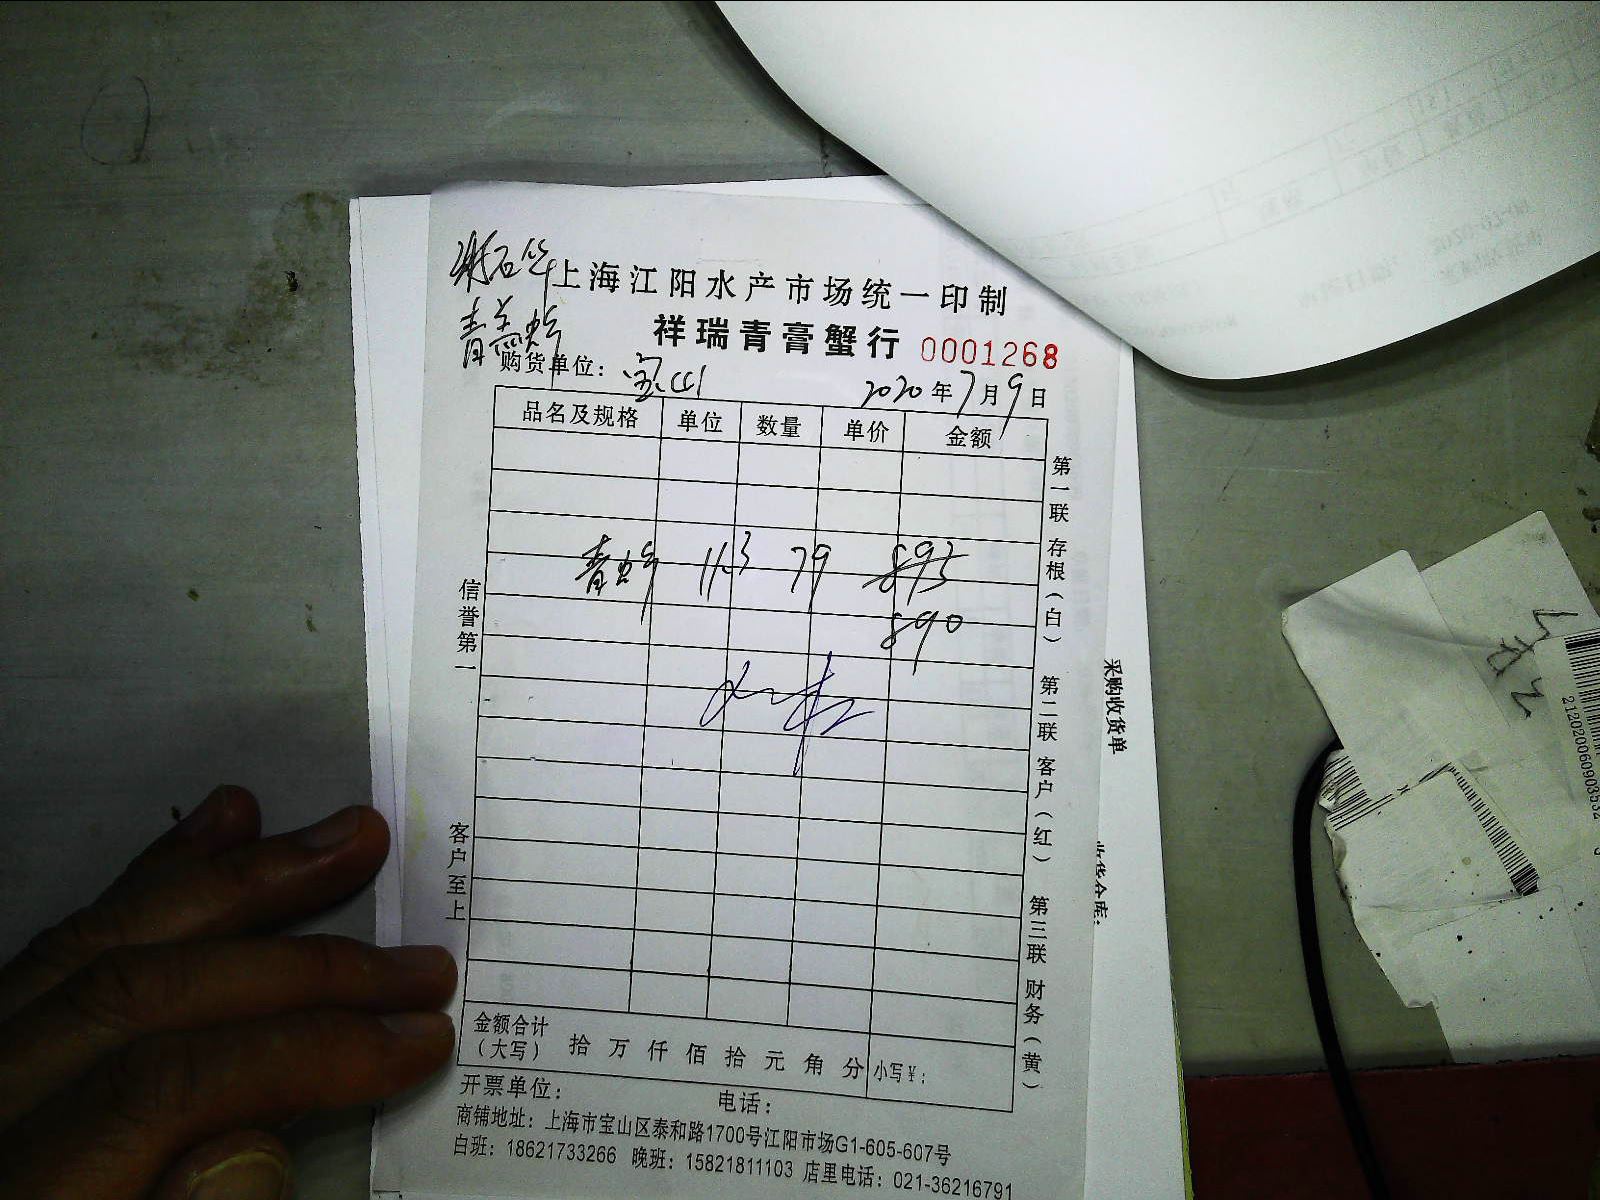 上海江阳水产市场统一印制
祥瑞青膏蟹行 0001268
购货单位: 宝山 2020年7月9日
品名及规格 单位 数量 单价 金额
青 11.3 79 893
890
信誉第一
客户至上
第一联 存根(白)
第二联 客户(红)
第三联 财务(黄)
金额合计
(大写) 拾 万 仟 佰 拾 元 角 分 小写¥:
开票单位: 电话:
商铺地址: 上海市宝山区泰和路1700号江阳市场G1-605-607号
白班: 18621733266 晚班: 15821811103 店里电话: 021-36216791
采购收货单